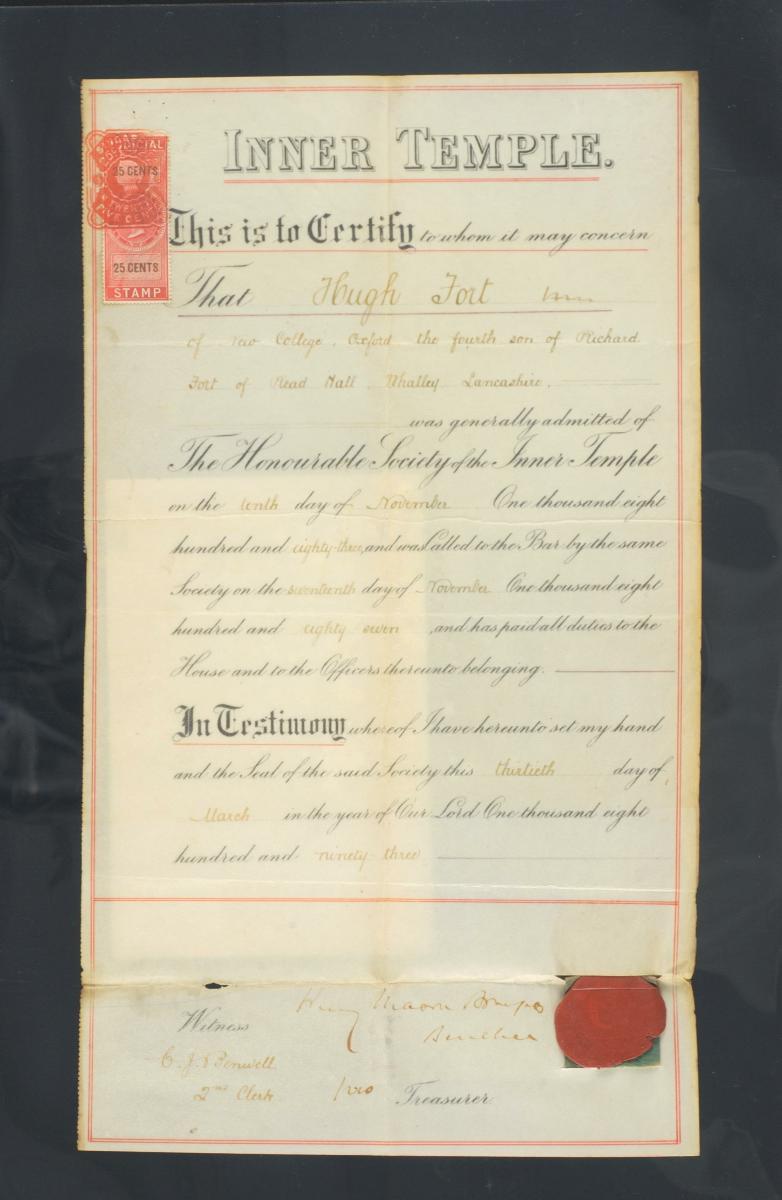 INNER TEMPLE.
JUDICIAL
25 CENTS
25 CENTS
STAMP
This is to Certify to whom it may concern
That Hugh Fort
of New College, Oxford the fourth son of Richard
Fort of Read Hall, Whalley Lancashire,
was generally admitted of
The Honourable Society of the Inner Temple
on the tenth day of November One thousand eight
hundred and eighty-three, and was Called to the Bar by the same
Society on the seventeenth day of November One thousand eight
hundred and eighty seven, and has paid all duties to the
House and to the Officers thereunto belonging.
In Testimony whereof I have hereunto set my hand
and the Seal of the said Society this thirtieth day of,
March in the year of Our Lord One thousand eight
hundred and ninety three
Henry Mason
Bencher
Witness
2nd Clerk
pro Treasurer